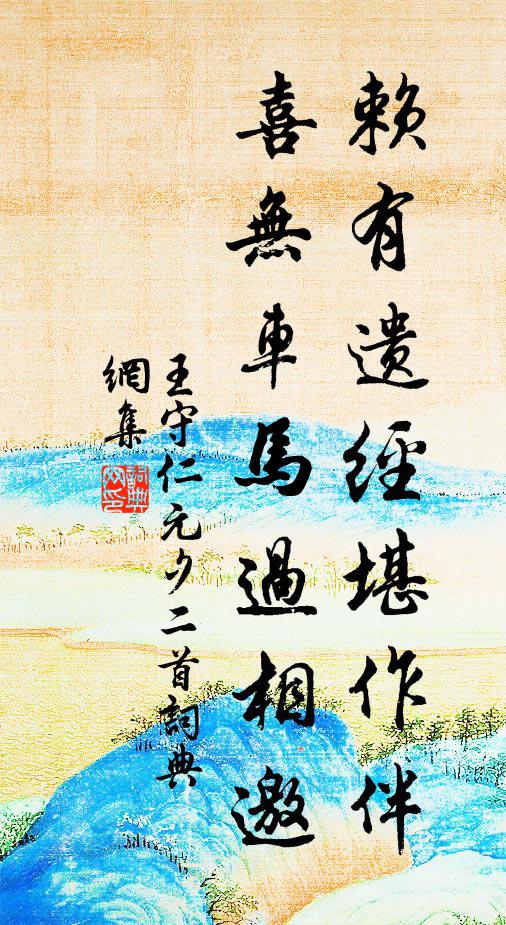 賴有遺經堪作伴
喜無車馬過相邀
王守仁元夕二首詞典
網集